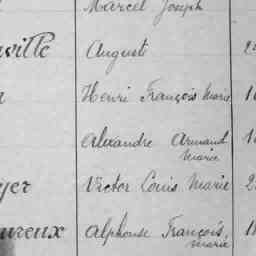 Marcel Joseph
ville Auguste
Henri François Marie
Alexandre Armand
Marie
yer Victor Louis Marie
ureux Alphonse François,
Marie